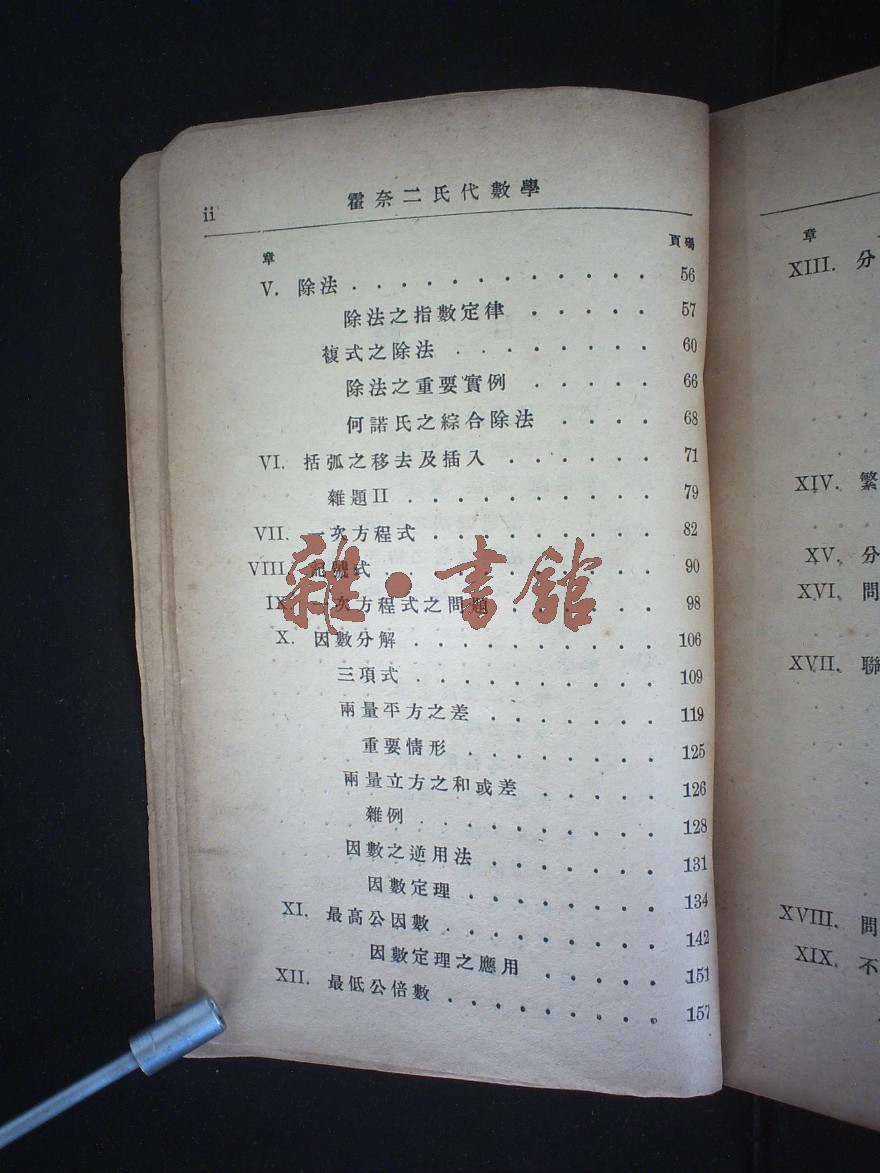 ii 霍奈二氏代數學
章 頁碼
V. 除法 . . . . . . . . . . . . . 56
除法之指數定律 . . . . . 57
複式之除法 . . . . . . . . 60
除法之重要實例 . . . . . 66
何諾氏之綜合除法 . . . . 68
VI. 括弧之移去及插入 . . . . . . 71
雜題II . . . . . . . . . . 79
VII. 一次方程式 . . . . . . . . . 82
VIII. 記號式 . . . . . . . . . . 90
IX. 一次方程式之問題 . . . . . . 98
X. 因數分解 . . . . . . . . . . 106
三項式 . . . . . . . . . . 109
兩量平方之差 . . . . . . . 119
重要情形 . . . . . . . . 125
兩量立方之和或差 . . . . . . 126
雜例 . . . . . . . . . . 128
因數之逆用法 . . . . . . . 131
因數定理 . . . . . . . . 134
XI. 最高公因數 . . . . . . . . . 142
因數定理之應用 . . . . . 151
XII. 最低公倍數 . . . . . . . . . 157
雜·書館
章
XIII. 分
XIV. 繁
XV. 分
XVI. 問
XVII. 聯
XVIII. 問
XIX. 不